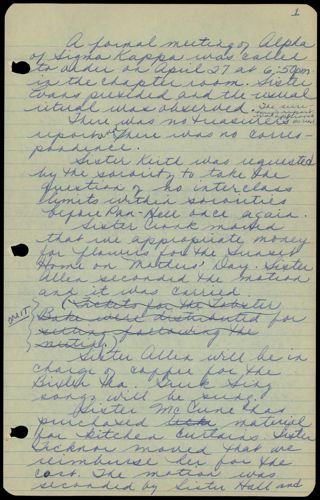 1
A formal meeting of Alpha
of Sigma Kappa was called
to order on April 27 at 6:50pm
in the chapter room. Sister
Evans presided and the usual
ritual was observed. The
There was no treasurer's
report. There was no corres-
pondence.
Sister Keith was requested
by the sorority to take the
question of no interclass
limits within sororities
before Pan-Hell once again.
Sister Cronk moved
that we appropriate money
for flowers for the Sunset
Home on Mothers' Day. Sister
Allen seconded the motion
and it was carried.
(Tickets for the Lobster
OMIT
Bake were distributed for
selling following the
meeting.)
Sister Allen will be in
charge of coffee for the
Birthday Tea. Sing
songs will be sung.
Sister McCune has
purchased material
for kitchen curtains. Sister
moved that we
reimburse her for the
cost. The motion was
seconded by Sister Hall and